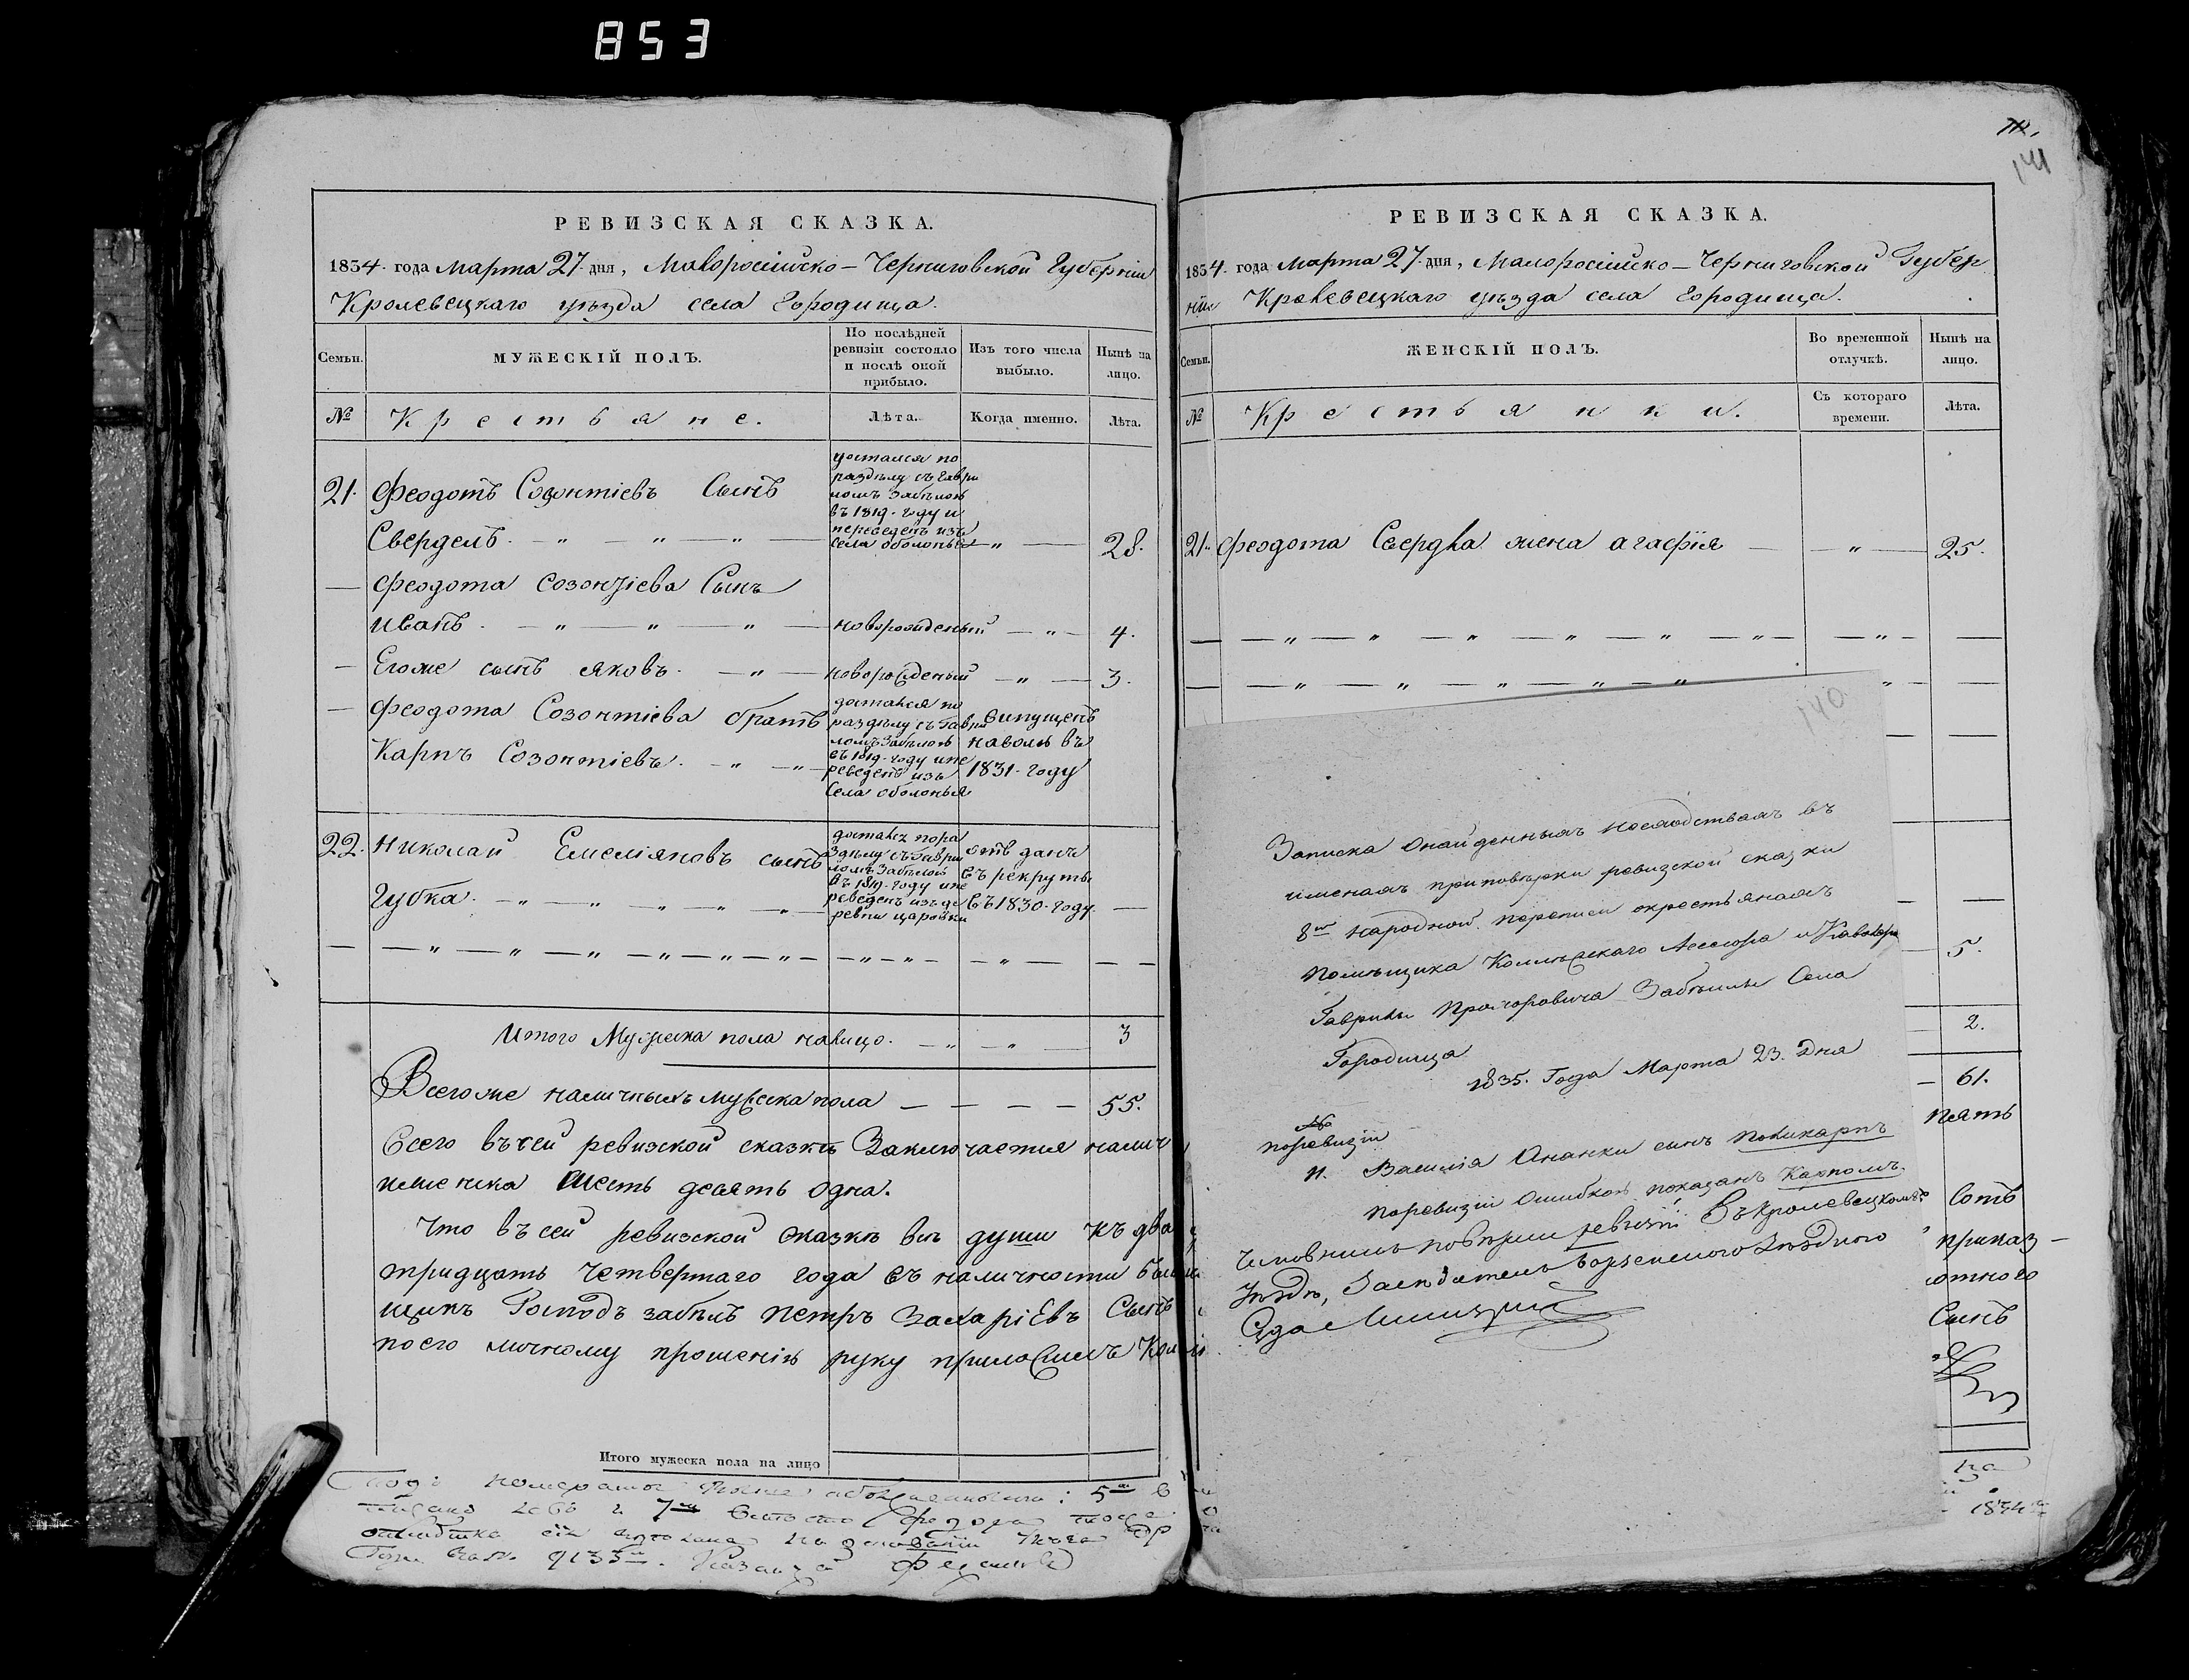 853
141
РЕВИЗСКАЯ СКАЗКА.
1834. года Марта 27. дня, Малоросійско-Черниговской Губерніи
Кролевецкаго уѣзда села Городища.
Семьи.
МУЖЕСКІЙ ПОЛЪ.
По послѣдней ревизіи состояло и послѣ оной прибыло.
Изъ того числа выбыло.
Нынѣ на лицо.
№
Крестьяне.
Лѣта.
Когда именно.
Лѣта.
21. Феодотъ Созонтіевъ Сынъ
Свердель. 28.
достался по
раздѣлу съ Гаври
ломъ Забѣлою
въ 1819. году и
переведенъ изъ
села оболонья
Феодота Созонтіева Сынъ
Иванъ. новорожденый 4.
Егоже сынъ Яковъ. новорожденый 3.
Феодота Созонтіева братъ
Карпъ Созонтіевъ.
достался по
раздѣлу съ Гаври
ломъ Забѣлою
въ 1819. году и пе
реведенъ изъ
Села оболонья
випущенъ
наволю въ
1831. году
22. Николай Емеліяновъ сынъ
Губка.
досталъ по ра
здѣлу съ Гаври
ломъ Забѣлою
въ 1819. году и пе
реведенъ изъ де
ревни царовки
отъ данъ
въ рекруты
въ 1830. году.
Итого Мужеска пола налицо. 3
Всегоже наличныхъ мужеска пола 55.
Всего въ сей ревизской сказкѣ Заключается налич
женска шесть десять одна.
Что въ сей ревизской сказкѣ всѣ души къ два
тридцать четвертаго года въ наличности были
щикъ Господъ забѣлъ Петръ Захаріевъ Сынъ
по его личному прошенію руку приложилъ
Итого мужеска пола на лицо
РЕВИЗСКАЯ СКАЗКА.
1834. года Марта 27. дня, Малоросійско-Черниговской Губер
ніи Кролевецкаго уѣзда села Городища.
Семьи.
ЖЕНСКІЙ ПОЛЪ.
Во временной отлучкѣ.
Нынѣ на лицо.
№
Крестьянки.
Съ котораго времени.
Лѣта.
21. Феодота Свердла жена агафія 25.
140
Записка онайденныхъ въ
именахъ приповѣрки ревизской сказки
8й народной переписи окрестьянахъ
помѣщика Коллежскаго Ассесора и Кавалера
Гаврилы Прохоровича Забѣлы Села
Городища
1835. Года Марта 23. Дня
№
поревизіи
11. Василія Ананки сынъ Поликарпъ
поревизіи ошибкою показанъ Карпомъ.
Чиновникъ повѣрки ревизіи въ Кролевецкомъ
уѣздѣ, Засѣдатель Борзенского уѣздного
Суда
5.
2.
61.
пять
сотъ
приказ-
отного
Сынъ
на
1834